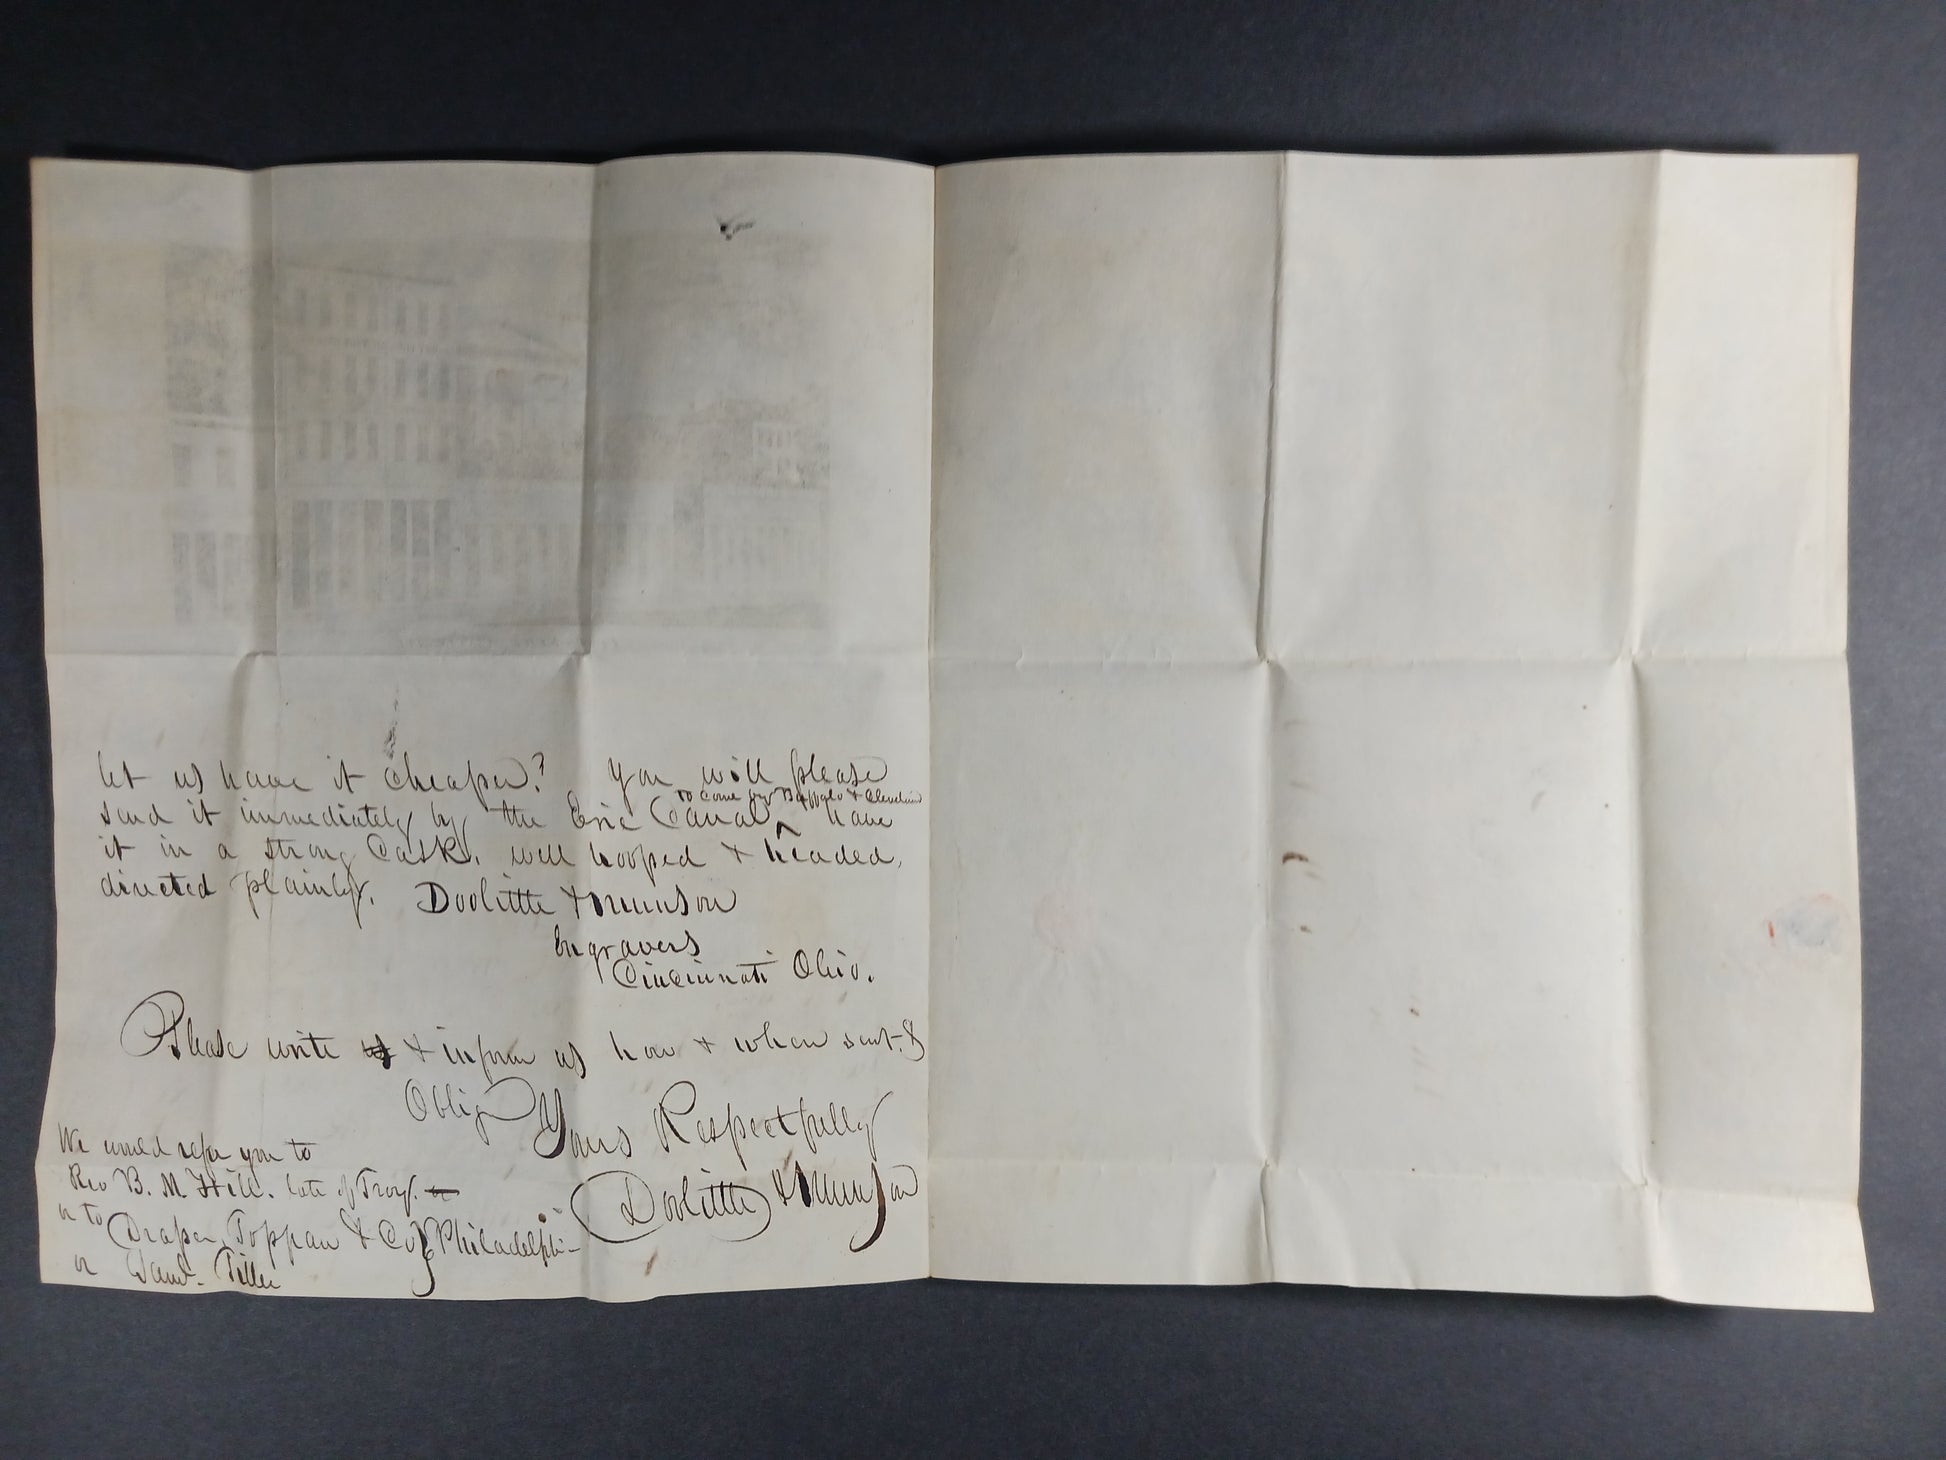 let us have it cheaper? You will please
send it immediately by the Erie Canal ^ to come by Buffalo & Cleveland have
it in a strong Cask, well hooped & headed,
directed plainly, Doolittle & Munson
Engravers
Cincinnati Ohio.
Please write us & inform us how & when sent. &
Oblige Yours Respectfully
Doolittle & Munson
We would refer you to
Rev B. M. Hill. late of Troy. or
or to Draper, Toppan & Co Philadelphi
or Saml. Tiller